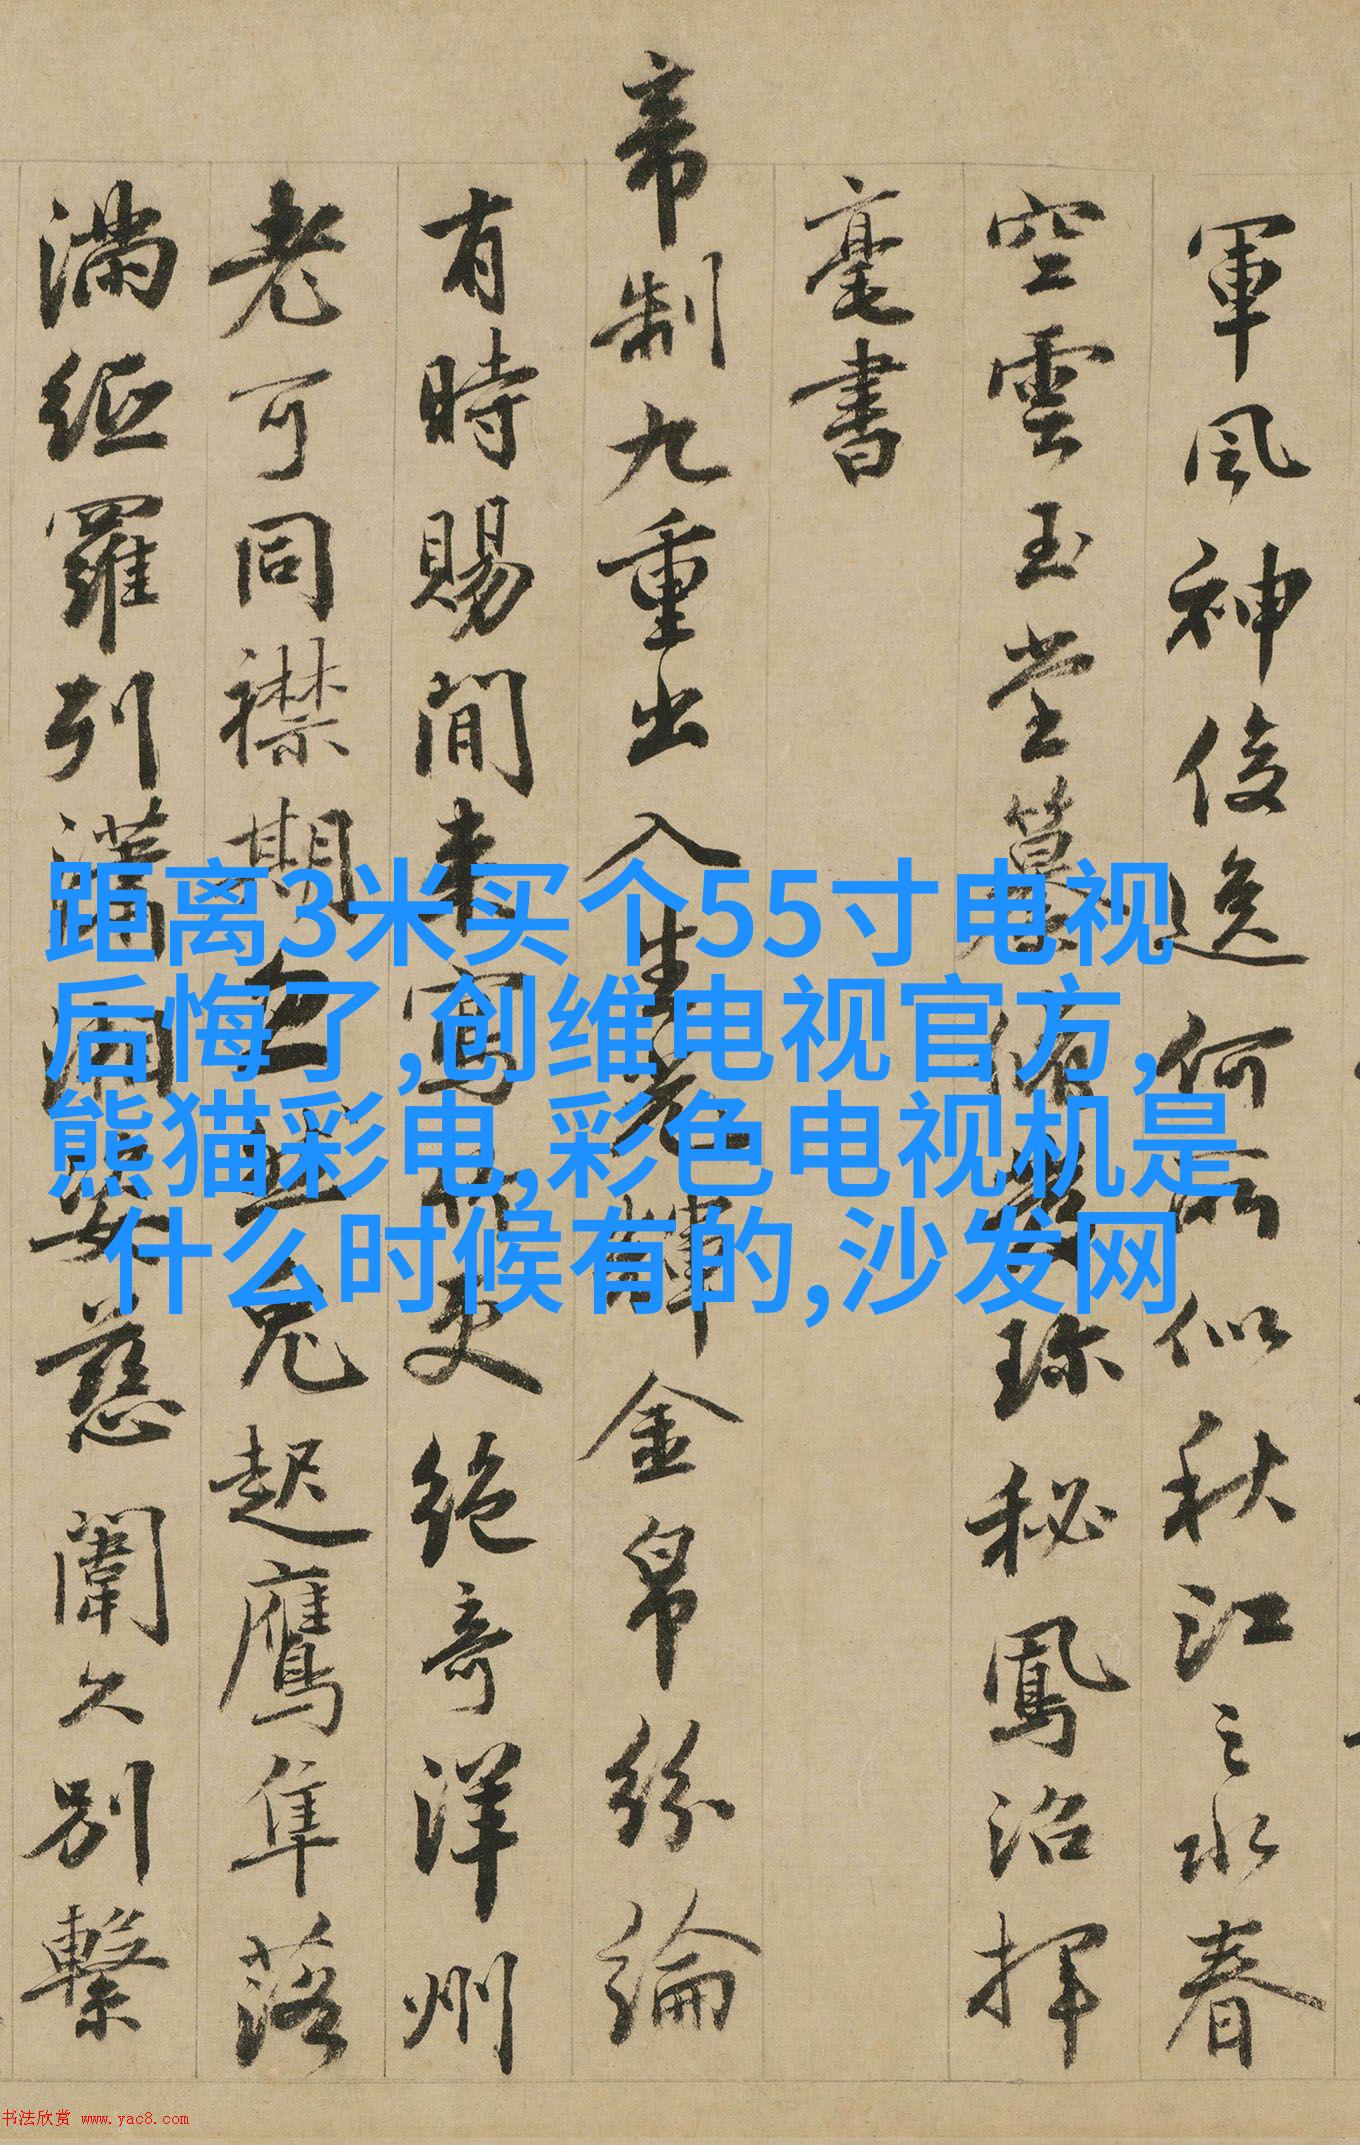 軍風神俊逸何所似秋江之水春
空雲玉堂暮侍發珎秘鳳沼揮
毫書
帝制九重出入生光輝金帛紛綸
有時賜閒来寫竹更絶奇洋州
老可同襟期兔起鷹隼落
滿絙羅列慈闈久別繫
距离3米买个55寸电视
后悔了,创维电视官方,
熊猫彩电,彩色电视机是
什么时候有的,沙发网
书法欣赏 www.yac8.com